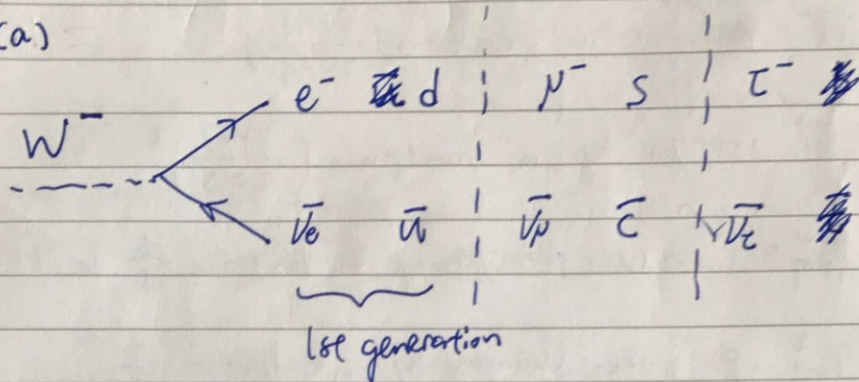 (a)
e⁻ d μ⁻ s τ⁻
W⁻
ν̄e ū ν̄μ c̄ ν̄τ
1st generation